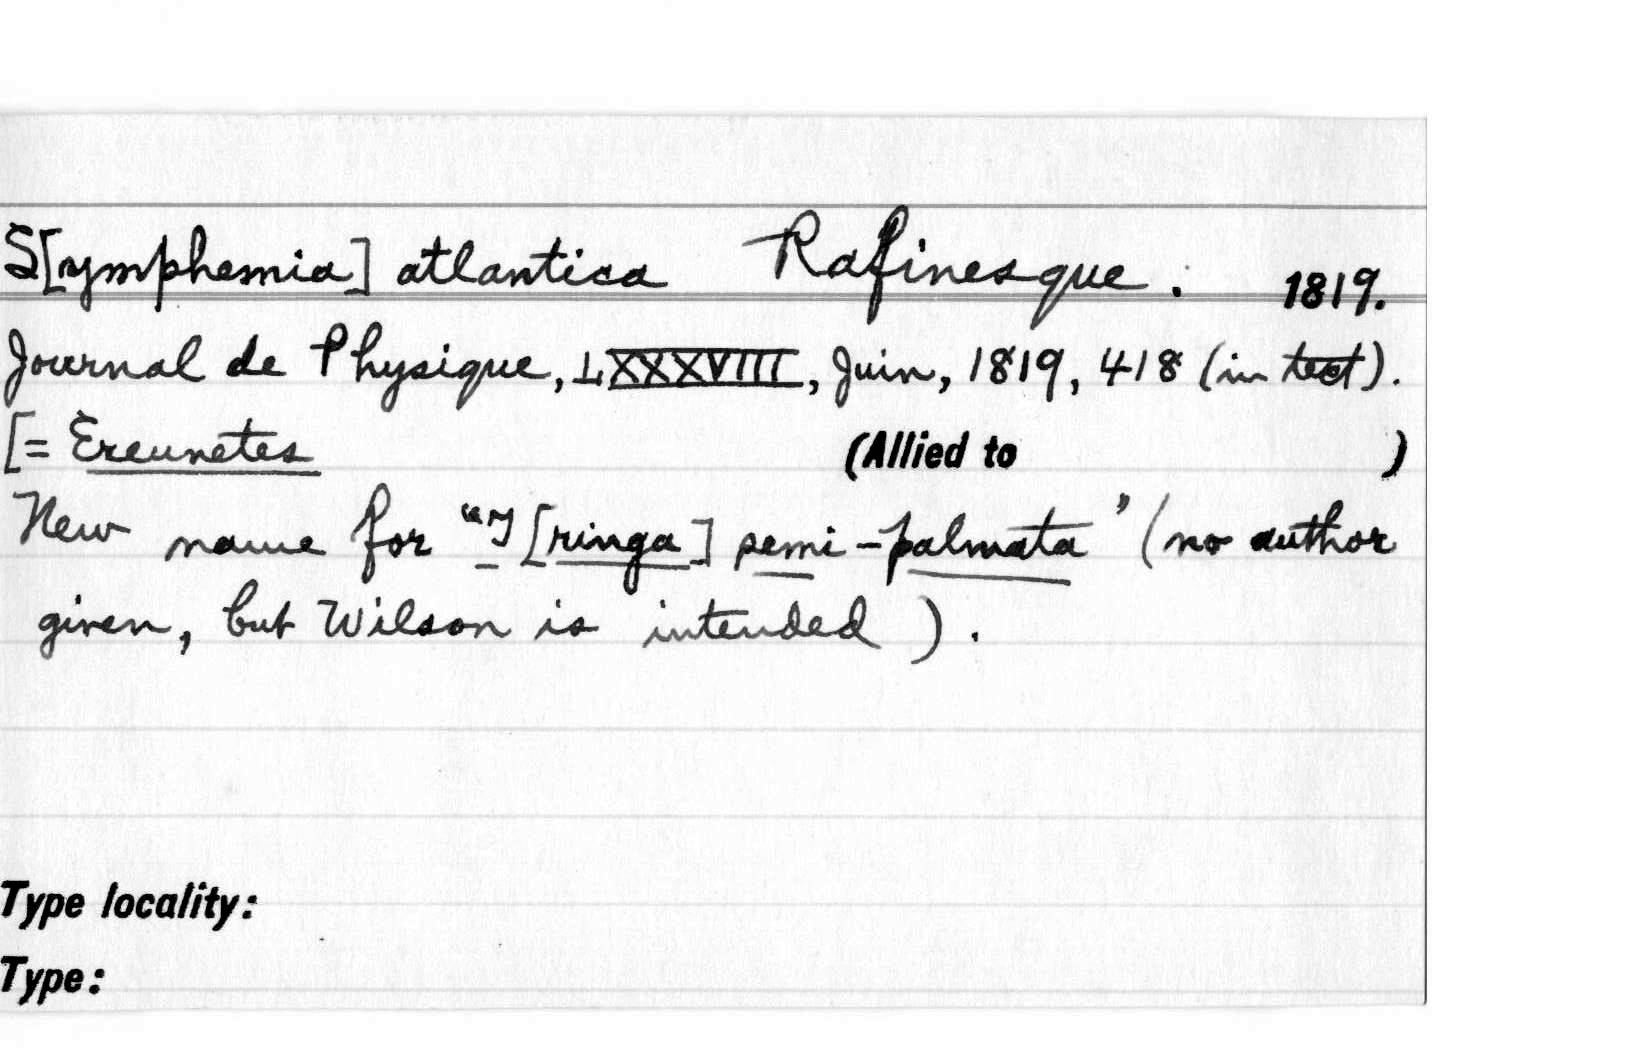 S[ymphemia] atlantica Rafinesque. 1819.
Journal de Physique, LXXXVIII, Juin, 1819, 418 (in text).
[= Ereunetes (Allied to )
New name for "T[ringa] semi-palmata" (no author
given, but Wilson is intended).
Type locality:
Type: